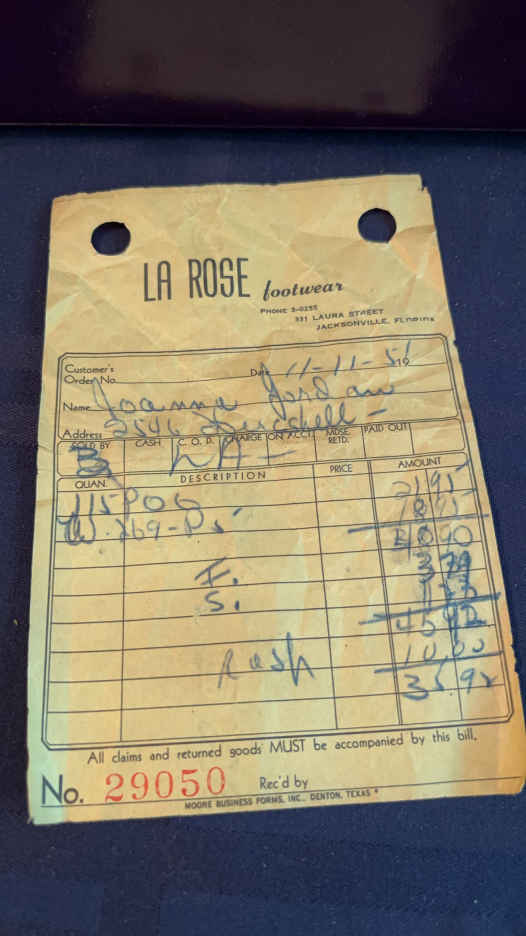 LA ROSE footwear
PHONE 5-0255
331 LAURA STREET
JACKSONVILLE, FLORIDA
Customer's
Order No. Date 11-11-56 19
Name Joanna Jordan
Address 2546 Herschell -
SOLD BY CASH C. O. D. CHARGE ON ACCT. MDSE. RETD. PAID OUT
QUAN. DESCRIPTION PRICE AMOUNT
21 95
W. 269-
18 95
40 90
F.
S.
45 92
Cash 10.00
35.92
All claims and returned goods MUST be accompanied by this bill.
No. 29050 Rec'd by
MOORE BUSINESS FORMS, INC., DENTON, TEXAS